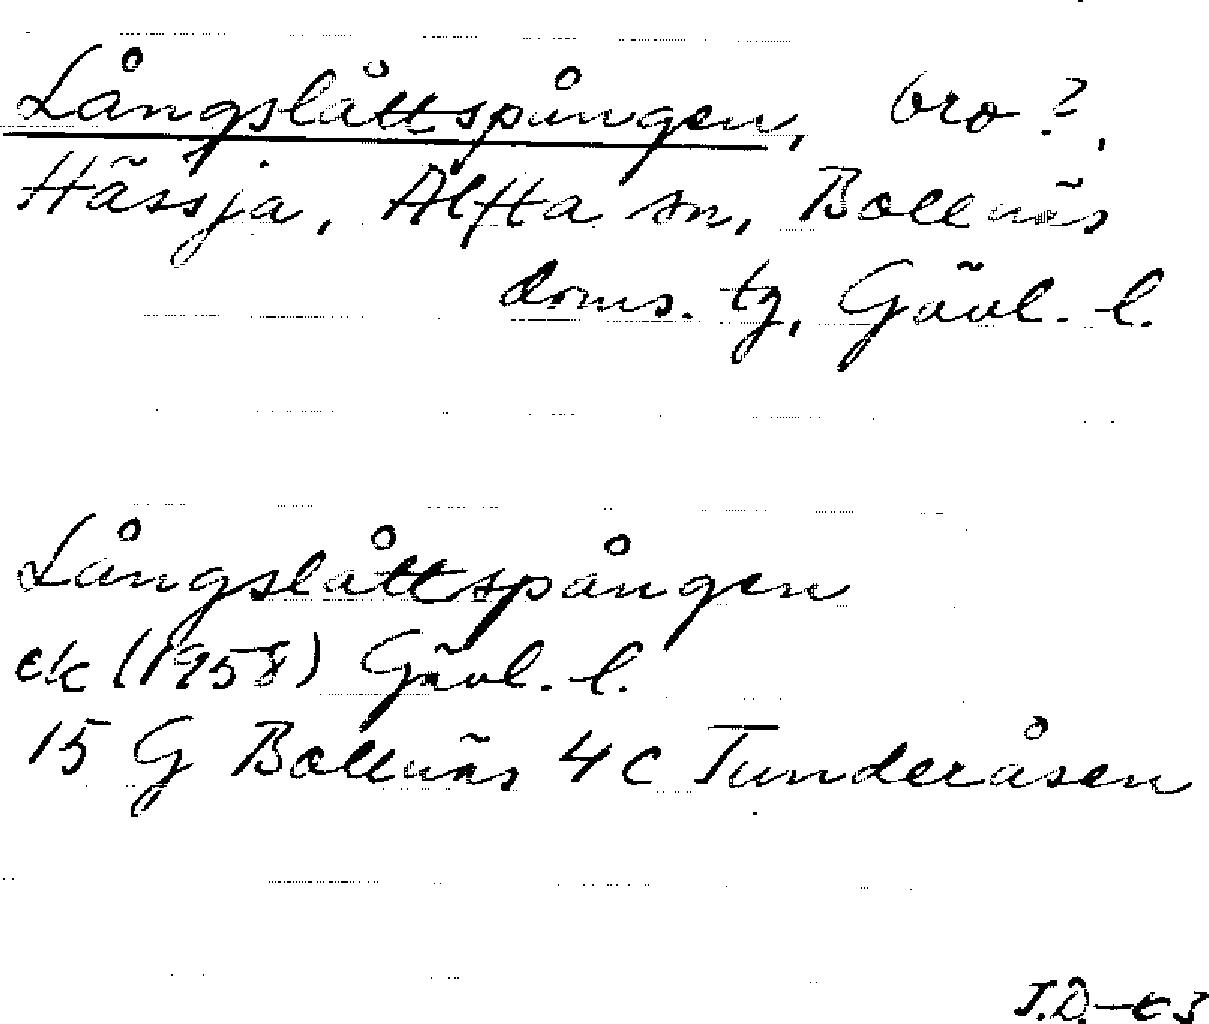 Långslåttspången, bro?,
Hässja, Alfta sn, Bollnäs
doms. tg, Gävl. l.
Långslåttspången
ek (1958) Gävl. l.
15 G Bollnäs 4 c Tunderåsen